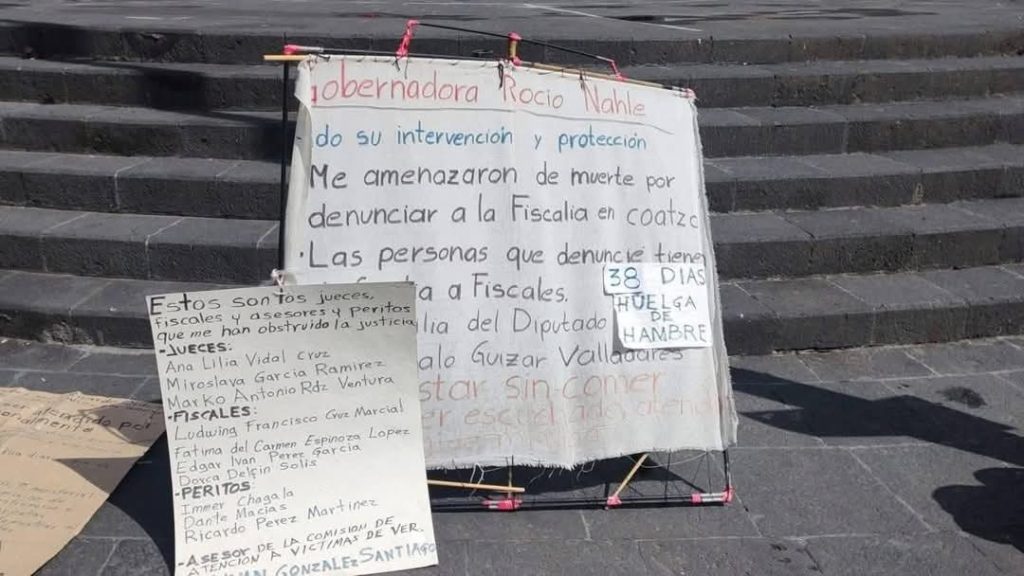 obernadora Rocio Nahle
do su intervención y protección
Me amenazaron de muerte por
denunciar a la Fiscalia en coatzc
·Las personas que denuncie tienen
a Fiscales.
lia del Diputado
alo Guizar Valladares
star sin comer
er escuchado atend
38 DIAS
HUELGA
DE
HAMBRE
Estos son los jueces,
fiscales y asesores y peritos
que me han obstruido la justicia
-JUECES:
Ana Lilia Vidal Cruz
Miroslava Garcia Ramirez
Marko Antonio Rdz Ventura
-FISCALES:
Ludwing Francisco Guz Marcial
Fatima del Carmen Espinoza Lopez
Edgar Ivan Perez Garcia
Dorca Delfin Solis
-PERITOS:
Immer Chagala
Dante Macias
Ricardo Perez Martinez
-ASESOR DE LA COMISION DE
ATENCION A VICTIMAS DE VER.
GONZALEZ SANTIAGO